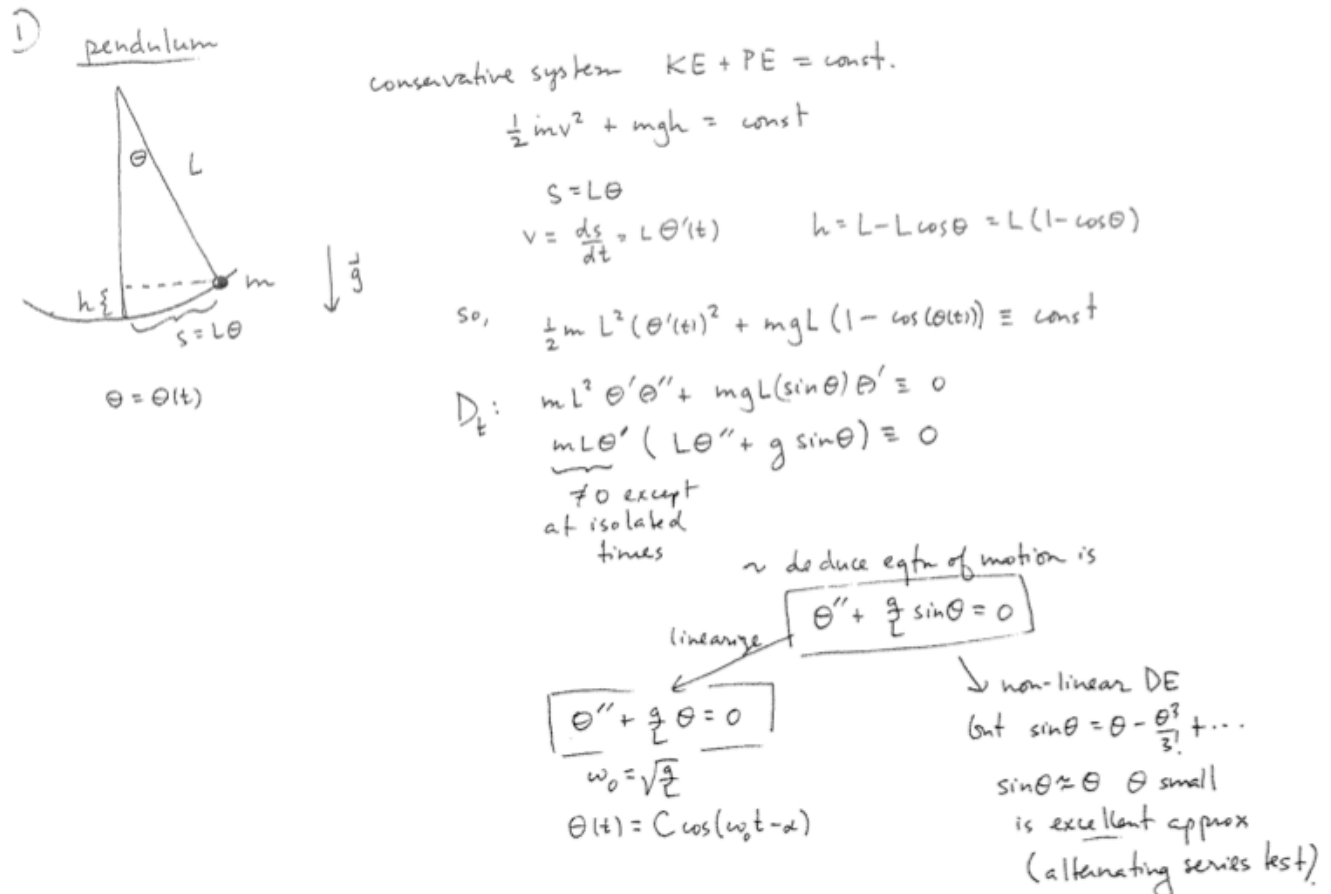 1) pendulum
θ
L
h{
m
s = Lθ
↓ g⃗
θ = θ(t)
conservative system KE + PE = const.
½ mv² + mgh = const
s = Lθ
v = ds/dt = L θ'(t) h = L - L cosθ = L (1 - cosθ)
so, ½ m L² (θ'(t))² + mgL (1 - cos(θ(t))) ≡ const
D_t: mL² θ'θ'' + mgL(sinθ) θ' ≡ 0
mLθ' ( Lθ'' + g sinθ) ≡ 0
≠ 0 except
at isolated
times
~ deduce eqtn of motion is
θ'' + g/L sinθ = 0
linearize
θ'' + g/L θ = 0
ω₀ = √(g/L)
θ(t) = C cos(ω₀t - α)
↘ non-linear DE
but sinθ = θ - θ³/3! + ...
sinθ ≈ θ θ small
is excellent approx
(alternating series test).